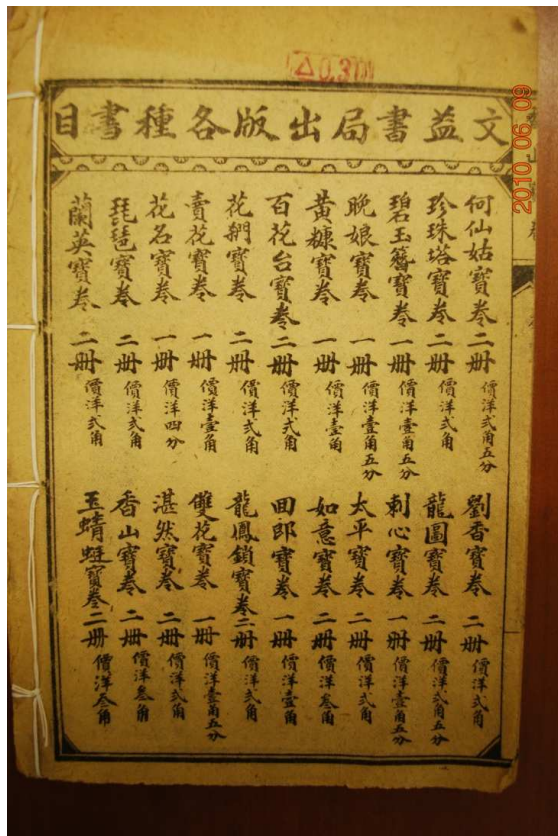 △0.30
2010 06 09
文益書局出版各種書目
何仙姑寶卷 二册 價洋弍角五分
珍珠塔寶卷 二册 價洋弍角
碧玉簪寶卷 一册 價洋壹角五分
晚娘寶卷 一册 價洋壹角五分
黃糠寶卷 一册 價洋壹角
百花台寶卷 二册 價洋弍角
花𣏌寶卷 二册 價洋弍角
賣花寶卷 一册 價洋壹角
花名寶卷 一册 價洋四分
琵琶寶卷 二册 價洋弍角
蘭英寶卷 二册 價洋弍角
劉香寶卷 二册 價洋弍角
龍圖寶卷 二册 價洋弍角五分
刺心寶卷 一册 價洋壹角五分
太平寶卷 二册 價洋弍角
如意寶卷 二册 價洋叁角
回郎寶卷 一册 價洋壹角
龍鳳鎖寶卷 二册 價洋弍角
雙花寶卷 一册 價洋壹角五分
湛然寶卷 二册 價洋弍角
香山寶卷 二册 價洋叁角
玉蜻蜓寶卷 二册 價洋叁角